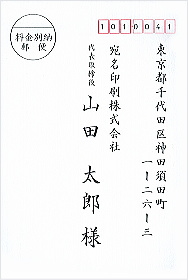 料金別納
郵便
1010041
東京都千代田区神田須田町
一ー二六ー三
宛名印刷株式会社
代表取締役
山田 太郎 様